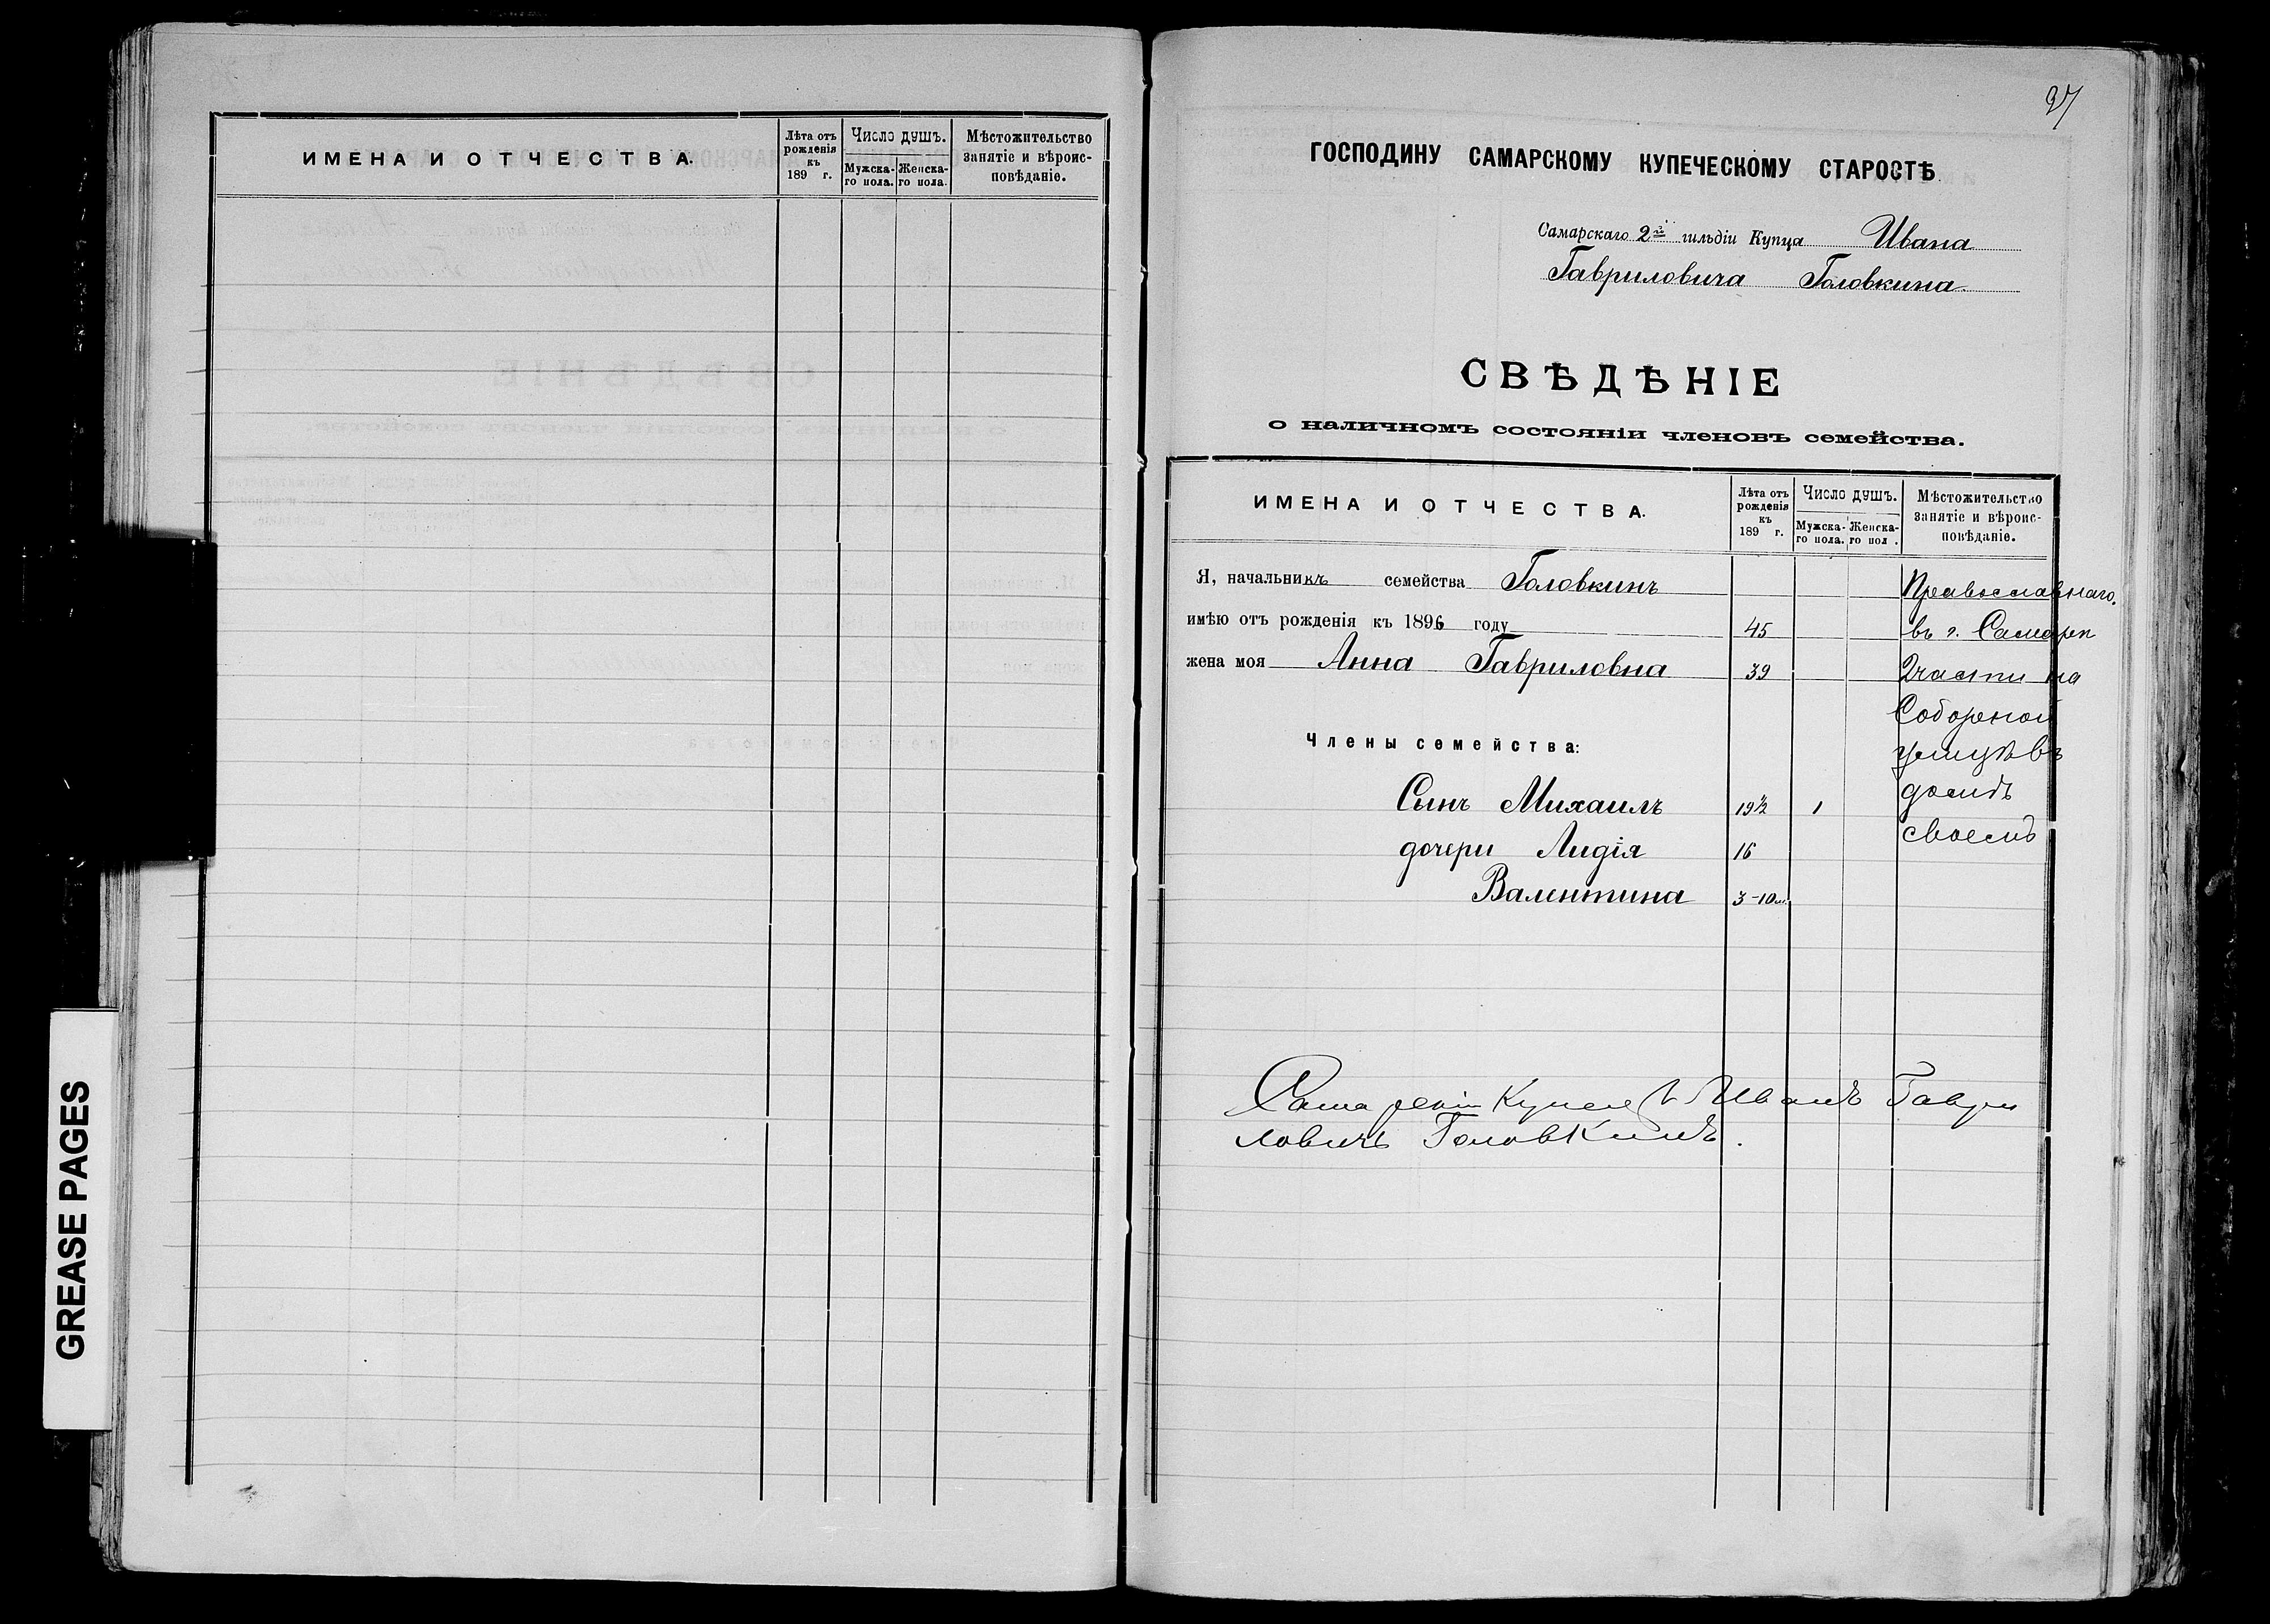 ИМЕНА И ОТЧЕСТВА.
Лѣта отъ рожденія къ 189 г.
Число душъ.
Мужска-го пола.
Женска-го пола.
Мѣстожительство занятіе и вѣроис-повѣданіе.
GREASE PAGES
97
ГОСПОДИНУ САМАРСКОМУ КУПЕЧЕСКОМУ СТАРОСТѢ
Самарскаго 2й гильдіи Купца Ивана
Гавриловича Головкина.
СВѢДѢНІЕ
о наличномъ состояніи членовъ семейства.
ИМЕНА И ОТЧЕСТВА.
Лѣта отъ рожденія къ 189 г.
Число душъ.
Мужска-го пола.
Женска-го пол .
Мѣстожительство занятіе и вѣроис-повѣданіе.
Я, начальникъ семейства Головкинъ Православнаго.
имѣю отъ рожденія къ 1896 году 45 въ г. Самарѣ
жена моя Анна Гавриловна 39 2 части на
Соборной
Члены семейства: улицѣ въ
Сынъ Михаилъ 19½ 1 домѣ
дочери Лидія 16 своемъ
Валентина 3-10м.
Самарскій Купецъ Иванъ Гаври
ловичъ Головкинъ.